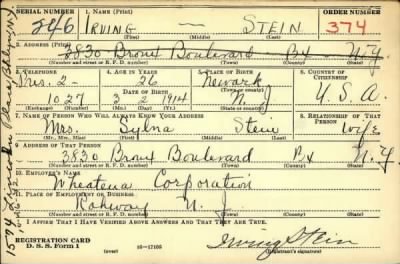 SERIAL NUMBER 1. NAME (Print) ORDER NUMBER
246 IRVING — STEIN 374
2. ADDRESS (Print)
3830 Bronx Boulevard Bx N.Y.
(Number and street or R. F. D. number) (Town) (County) (State)
3. TELEPHONE 4. AGE IN YEARS 5. PLACE OF BIRTH 6. COUNTRY OF CITIZENSHIP
2- 26 Newark
DATE OF BIRTH (Town or county)
1027 3 2 1914 N. J. U. S. A.
(Exchange) (Number) (Mo.) (Day) (Yr.) (State or country)
7. NAME OF PERSON WHO WILL ALWAYS KNOW YOUR ADDRESS 8. RELATIONSHIP OF THAT PERSON
Mrs. Sylna Stein Wife
(Mr., Mrs., Miss) (First) (Middle) (Last)
9. ADDRESS OF THAT PERSON
3830 Bronx Boulevard Bx N.Y.
(Number and street or R. F. D. number) (Town) (County) (State)
10. EMPLOYER'S NAME
Wheatena Corporation
11. PLACE OF EMPLOYMENT OR BUSINESS
Rahway N. J.
(Number and street or R. F. D. number) (Town) (County) (State)
I AFFIRM THAT I HAVE VERIFIED ABOVE ANSWERS AND THAT THEY ARE TRUE.
REGISTRATION CARD
D. S. S. Form 1 (over) 16—17105 Irving Stein
(Registrant's signature)